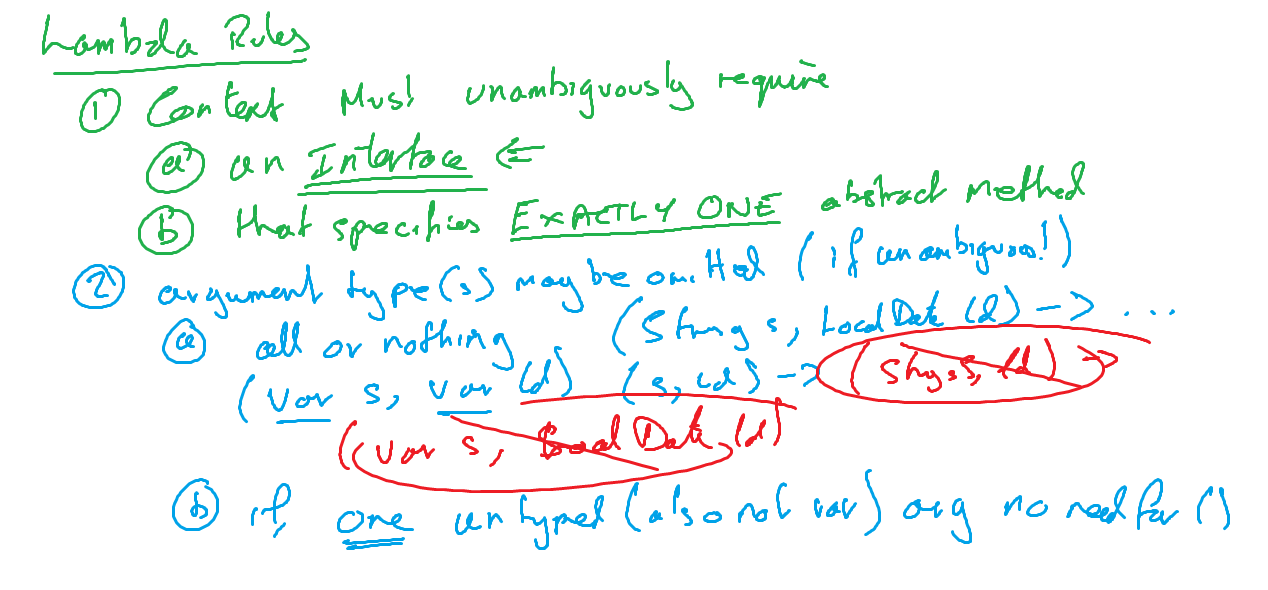 Lambda Rules
① Context Must unambiguously require
ⓐ an Interface ⇐
ⓑ that specifies EXACTLY ONE abstract method
② argument type(s) may be omitted (if unambiguous!)
ⓐ all or nothing (String s, LocalDate ld) -> ...
(var s, var ld) (s, ld) -> (String s, ld) ->
(var s, LocalDate ld)
ⓑ if one untyped (also not var) arg no need for ()